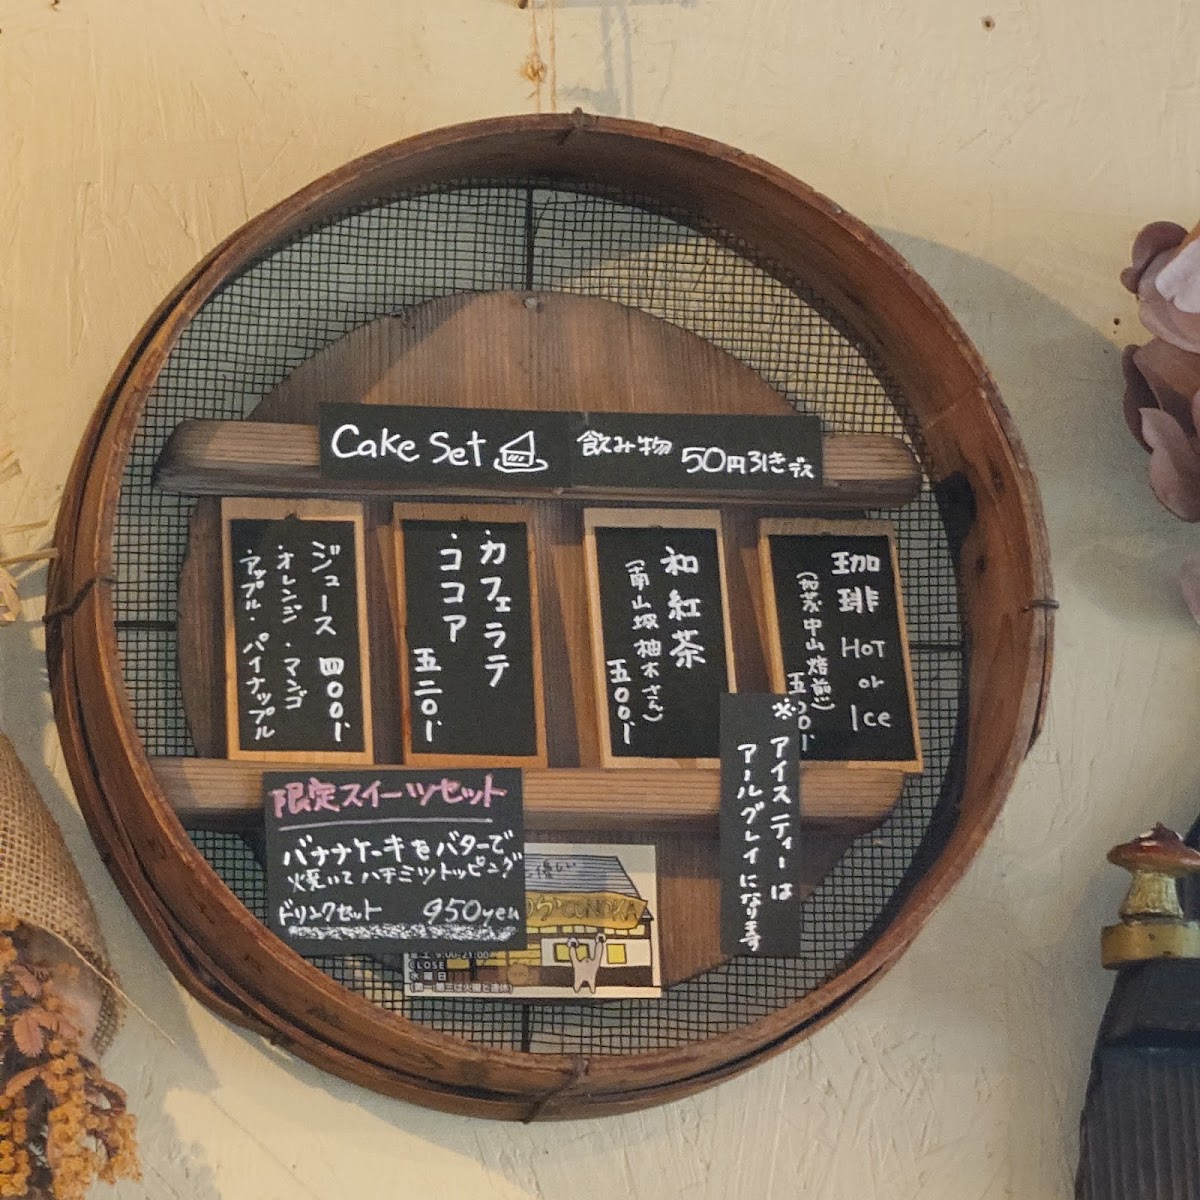 Cake Set
飲み物 50円引きデス
珈琲 HOT or Ice
(加茂中山焙煎)
和紅茶
(南山塚柚木さん)
五〇〇円
・カフェラテ
・ココア
五二〇円
ジュース 四〇〇円
・オレンジ・マンゴ
・アップル・パイナップル
※アイスティーは
アールグレイになります
限定スイーツセット
バナナケーキをバターで
焼いてハチミツトッピング
ドリンクセット 950yen
9:00-21:00
CLOSE
水曜日